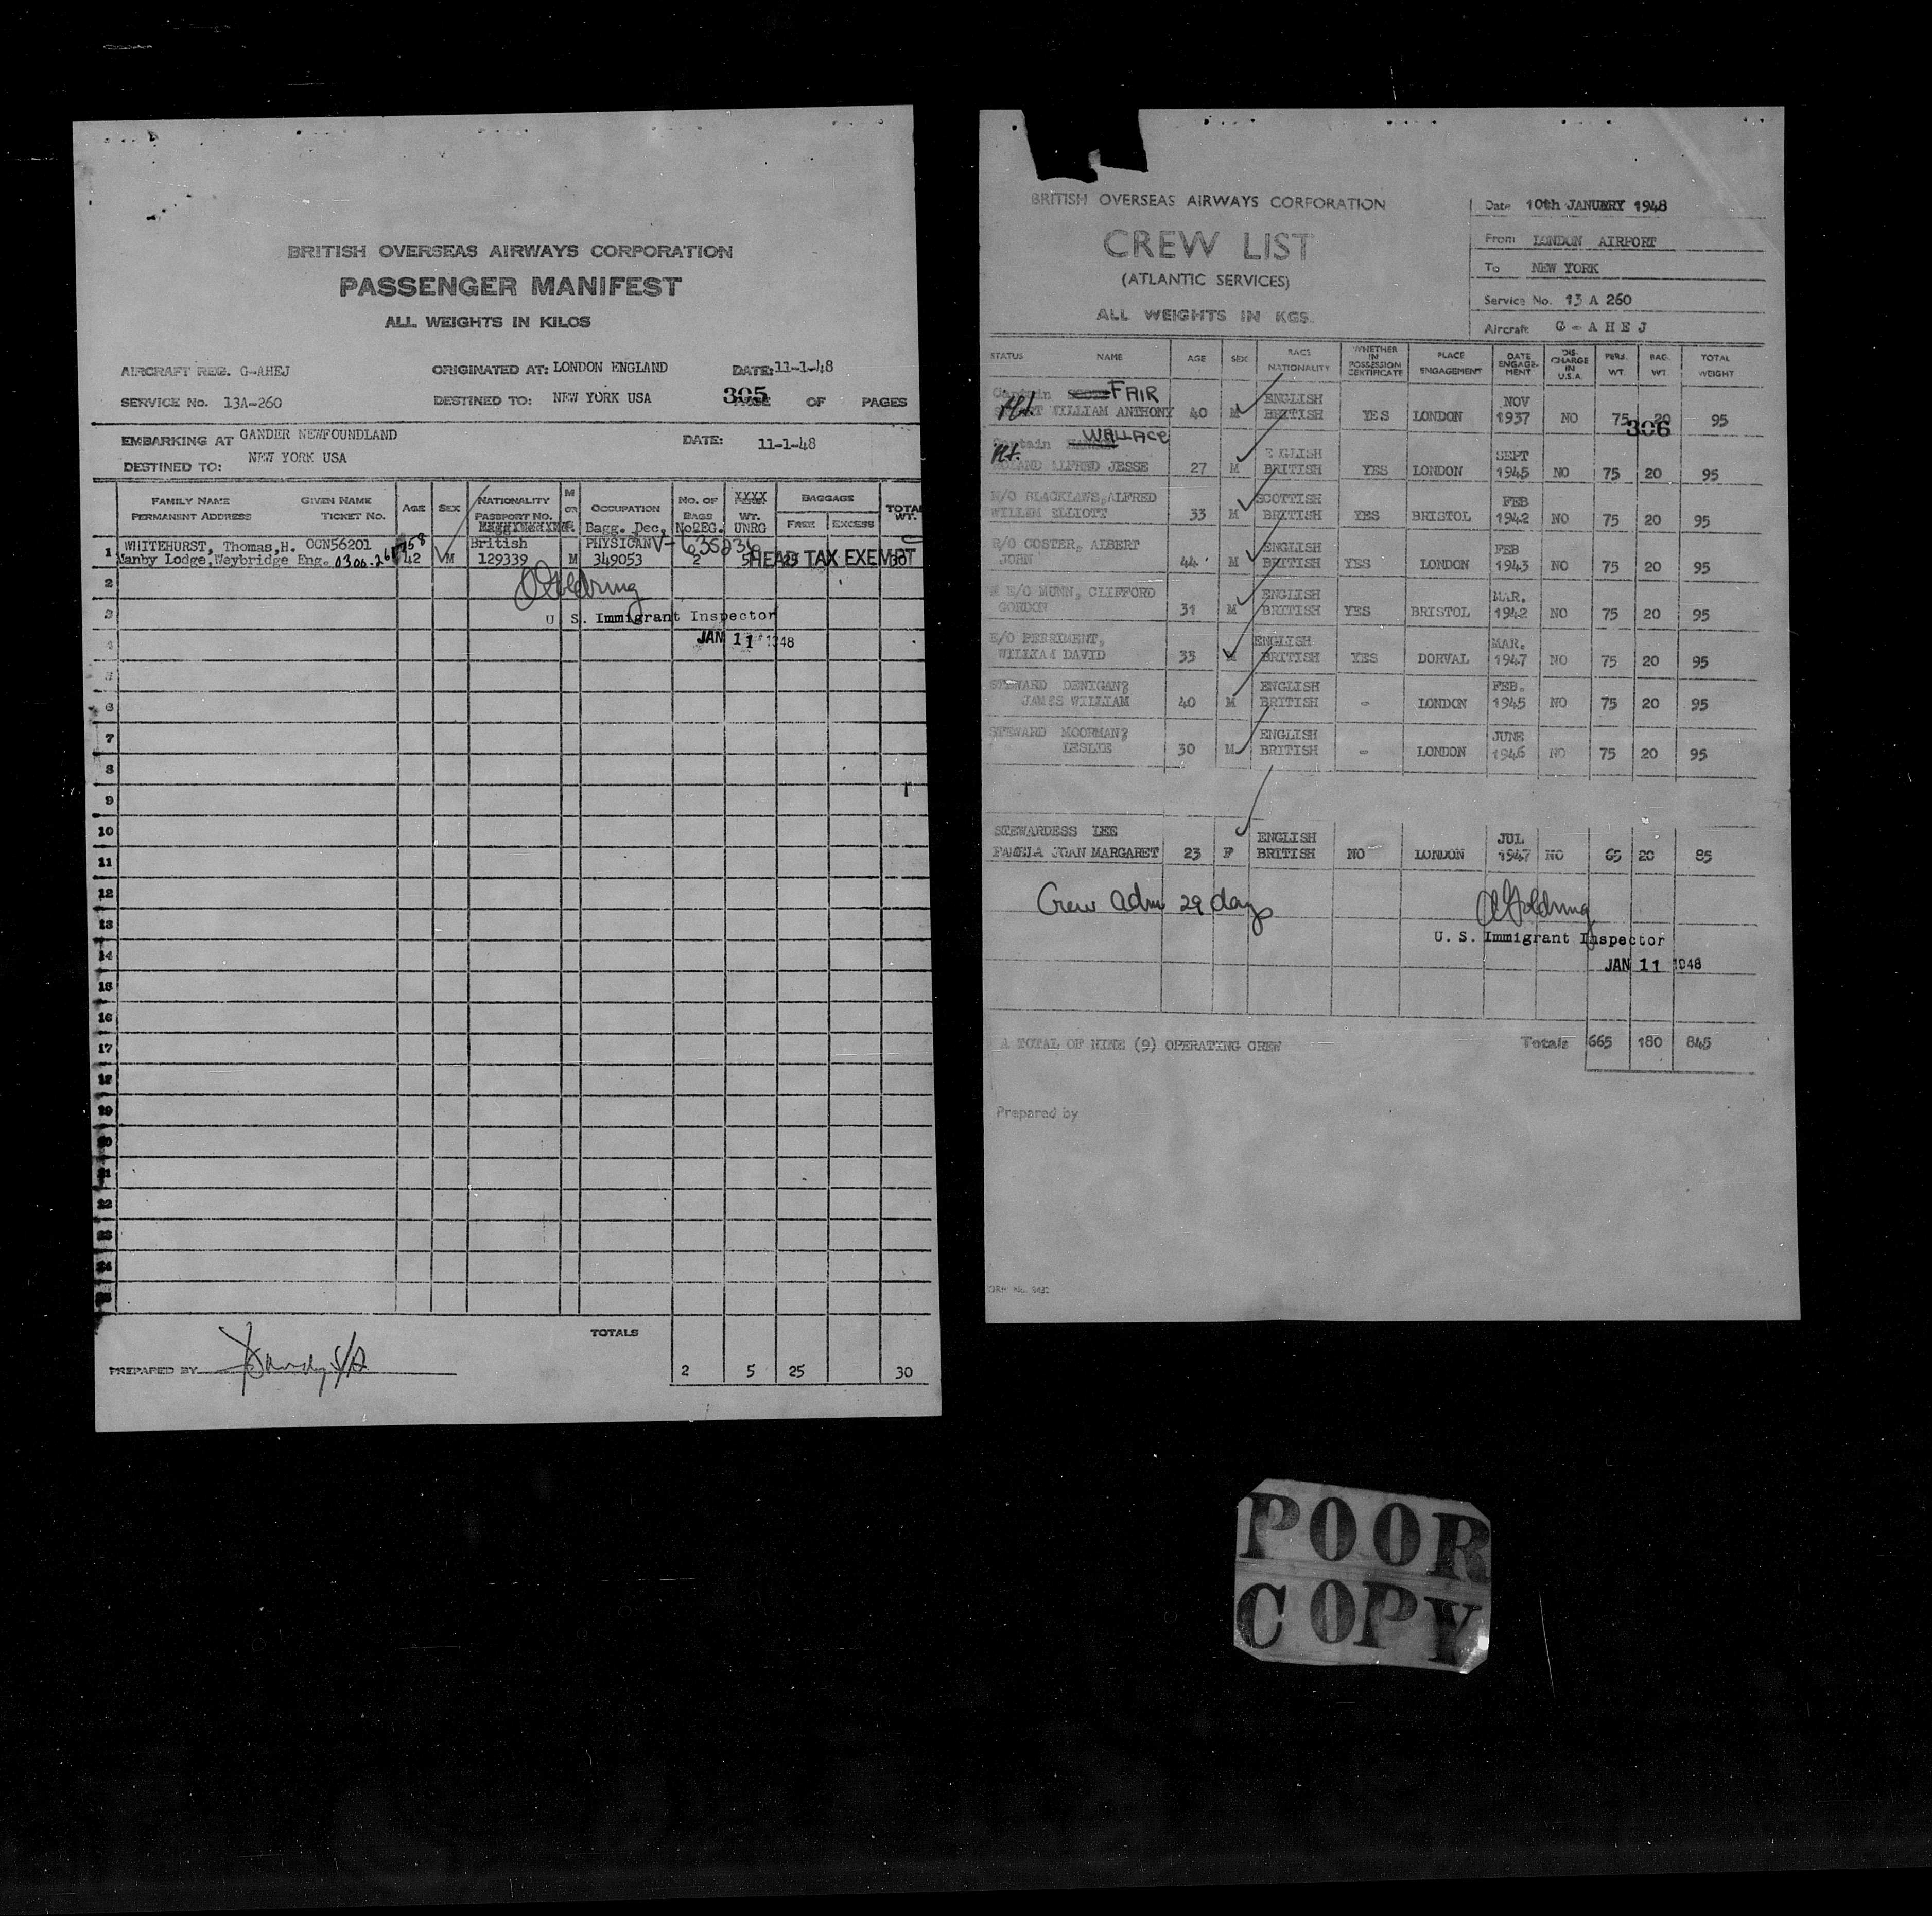 BRITISH OVERSEAS AIRWAYS CORPORATION
PASSENGER MANIFEST
ALL WEIGHTS IN KILOS
AIRCRAFT REG. G-AHEJ ORIGINATED AT: LONDON ENGLAND DATE: 11-1-48
SERVICE No. 13A-260 DESTINED TO: NEW YORK USA 305 OF PAGES
EMBARKING AT GANDER NEWFOUNDLAND DATE: 11-1-48
DESTINED TO: NEW YORK USA
FAMILY NAME GIVEN NAME AGE SEX NATIONALITY M OR OCCUPATION No. OF XXXX BAGGAGE TOTAL
PERMANENT ADDRESS TICKET No. PASSPORT No. Bagg. Dec. BAGS WT. FREE EXCESS WT.
NoREG. UNRG
1 WHITEHURST, Thomas,H. OCN56201 British PHYSICAN V-635236
Manby Lodge,Weybridge Eng. 42 M 129339 M 349053 2 5 HEAD TAX EXEMPT
2
3 U S. Immigrant Inspector
4 JAN 11 1948
5
6
7
8
9
10
11
12
13
14
15
16
17
18
19
20
21
22
23
24
25
TOTALS
PREPARED BY 2 5 25 30
BRITISH OVERSEAS AIRWAYS CORPORATION
CREW LIST
(ATLANTIC SERVICES)
ALL WEIGHTS IN KGS.
Date 10th JANUARY 1948
From LONDON AIRPORT
To NEW YORK
Service No. 13 A 260
Aircraft G-AHEJ
STATUS NAME AGE SEX RACE NATIONALITY WHETHER IN POSSESSION CERTIFICATE PLACE ENGAGEMENT DATE ENGAGEMENT DISCHARGE IN U.S.A. PERS. WT. BAG. WT. TOTAL WEIGHT
Captain FAIR ENGLISH NOV
WILLIAM ANTHONY 40 M BRITISH YES LONDON 1937 NO 75 20 95
306
Captain WALLACE ENGLISH SEPT
ROLAND ALFRED JESSE 27 M BRITISH YES LONDON 1945 NO 75 20 95
N/O BLACKLAWS,ALFRED SCOTTISH FEB
WILLEM ELLIOTT 33 M BRITISH YES BRISTOL 1942 NO 75 20 95
R/O COSTER, ALBERT ENGLISH FEB
JOHN 44 M BRITISH YES LONDON 1943 NO 75 20 95
E/O MUNN, CLIFFORD ENGLISH MAR.
GORDON 31 M BRITISH YES BRISTOL 1942 NO 75 20 95
E/O PERRIMENT, ENGLISH MAR.
WILLIAM DAVID 33 M BRITISH YES DORVAL 1947 NO 75 20 95
STEWARD DENIGAN; ENGLISH FEB.
JAMES WILLIAM 40 M BRITISH - LONDON 1945 NO 75 20 95
STEWARD MOORMAN; ENGLISH JUNE
LESLIE 30 M BRITISH - LONDON 1946 NO 75 20 95
STEWARDESS LEE ENGLISH JUL
PAMELA JOAN MARGARET 23 F BRITISH NO LONDON 1947 NO 65 20 85
Crew adm 29 days
U. S. Immigrant Inspector
JAN 11 1948
A TOTAL OF NINE (9) OPERATING CREW Totals 665 180 845
Prepared by
POOR
COPY